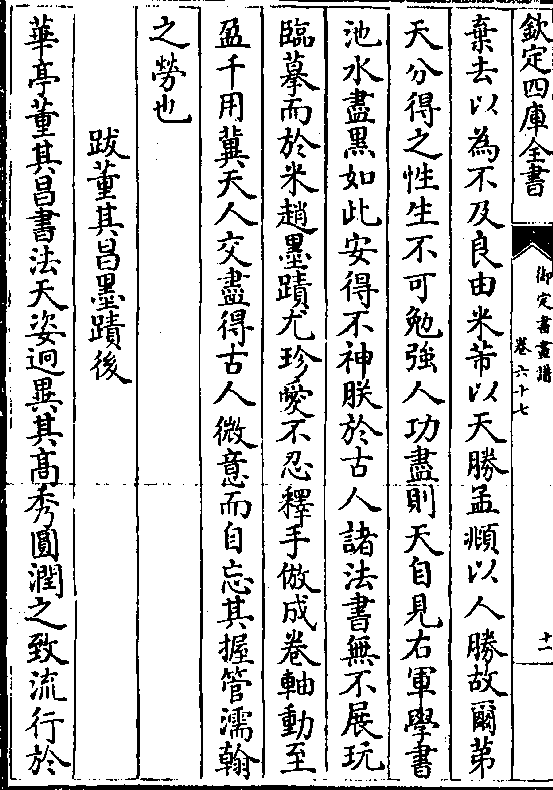 欽定四庫全書
御定書畫譜
卷六十七
十一
棄去以為不及良由米芾以天勝孟頫以人勝故爾苐
天分得之性生不可勉強人功盡則天自見右軍學書
池水盡黑如此安得不神朕於古人諸法書無不展玩
臨摹而於米趙墨蹟尤珍愛不忍釋手倣成卷軸動至
盈千用冀天人交盡得古人微意而自忘其握管濡翰
之勞也
跋董其昌墨蹟後
華亭董其昌書法天姿迥異其高秀圓潤之致流行於